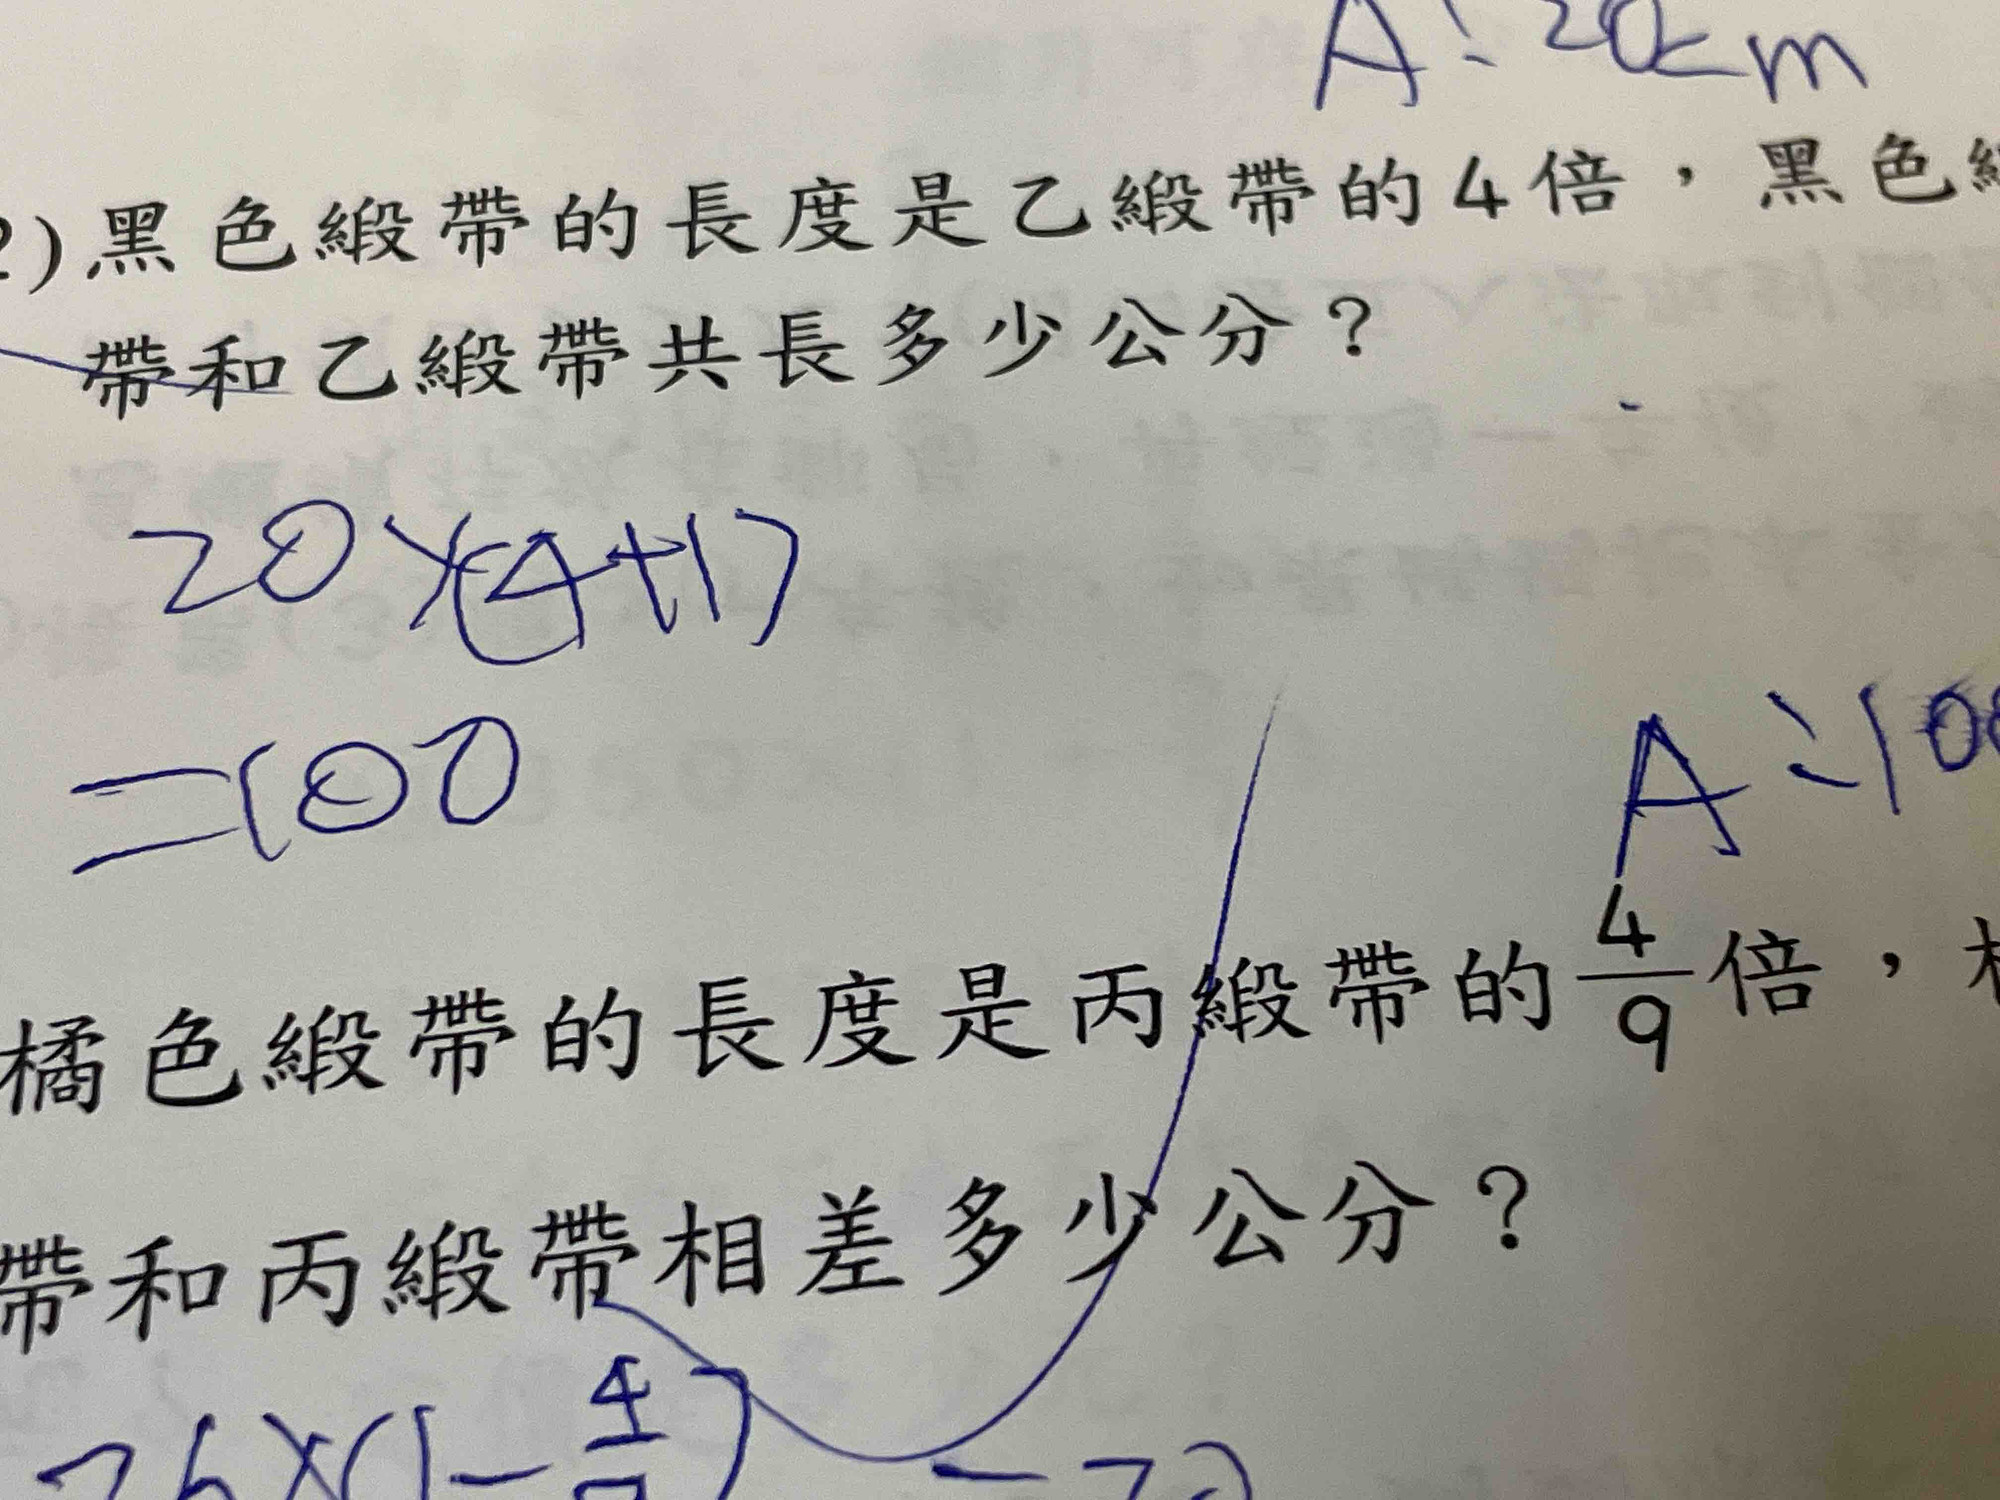 A:20cm
2)黑色緞帶的長度是乙緞帶的4倍,黑色
帶和乙緞帶共長多少公分?
20×(4+1)
=100
A:100
橘色緞帶的長度是丙緞帶的4/9倍,
帶和丙緞帶相差多少公分?
×(1-4/